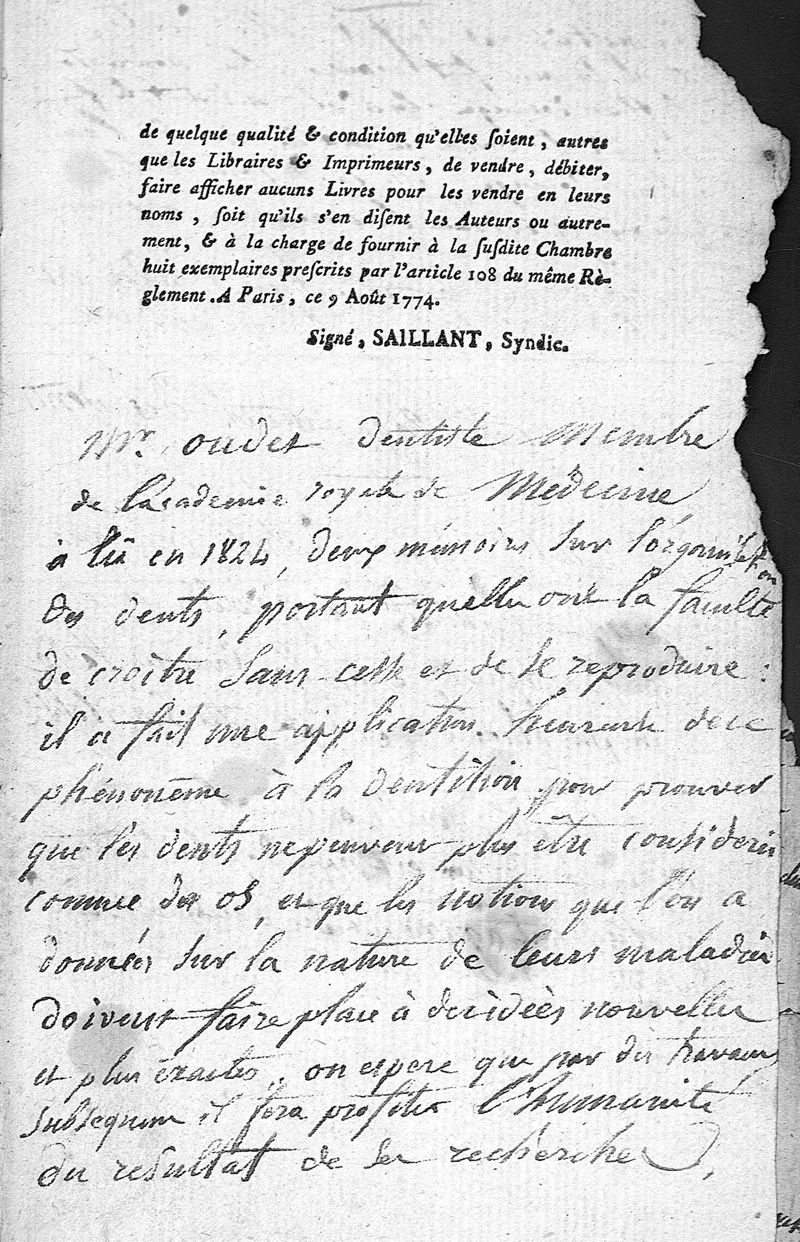 de quelque qualité & condition qu'elles ſoient, autres
que les Libraires & Imprimeurs, de vendre, débiter,
faire afficher aucuns Livres pour les vendre en leurs
noms, ſoit qu'ils s'en diſent les Auteurs ou autre-
ment, & à la charge de fournir à la ſuſdite Chambre
huit exemplaires preſcrits par l'article 108 du même Rè-
glement. A Paris, ce 9 Août 1774.
Signé, SAILLANT, Syndic.
Mr. oudet dentiste Membre
de l'académie royale de Médecine,
à lû en 1824, deux mémoires sur l'organisation
des dents, portant qu'elles ont la faculté
de croître sans cesse et de se reproduire :
il a fait une application heureuse de ce
phénomême à la dentition pour prouver
que les dents ne peuvent plus être considerées
comme des os, et que les notions que l'on a
données sur la nature de leurs maladies
doivent faire place à des idées nouvelles
et plus exactes, on espere que par des travaux
subsequens il fera profiter l'humanité
du resultat de ses recherches.